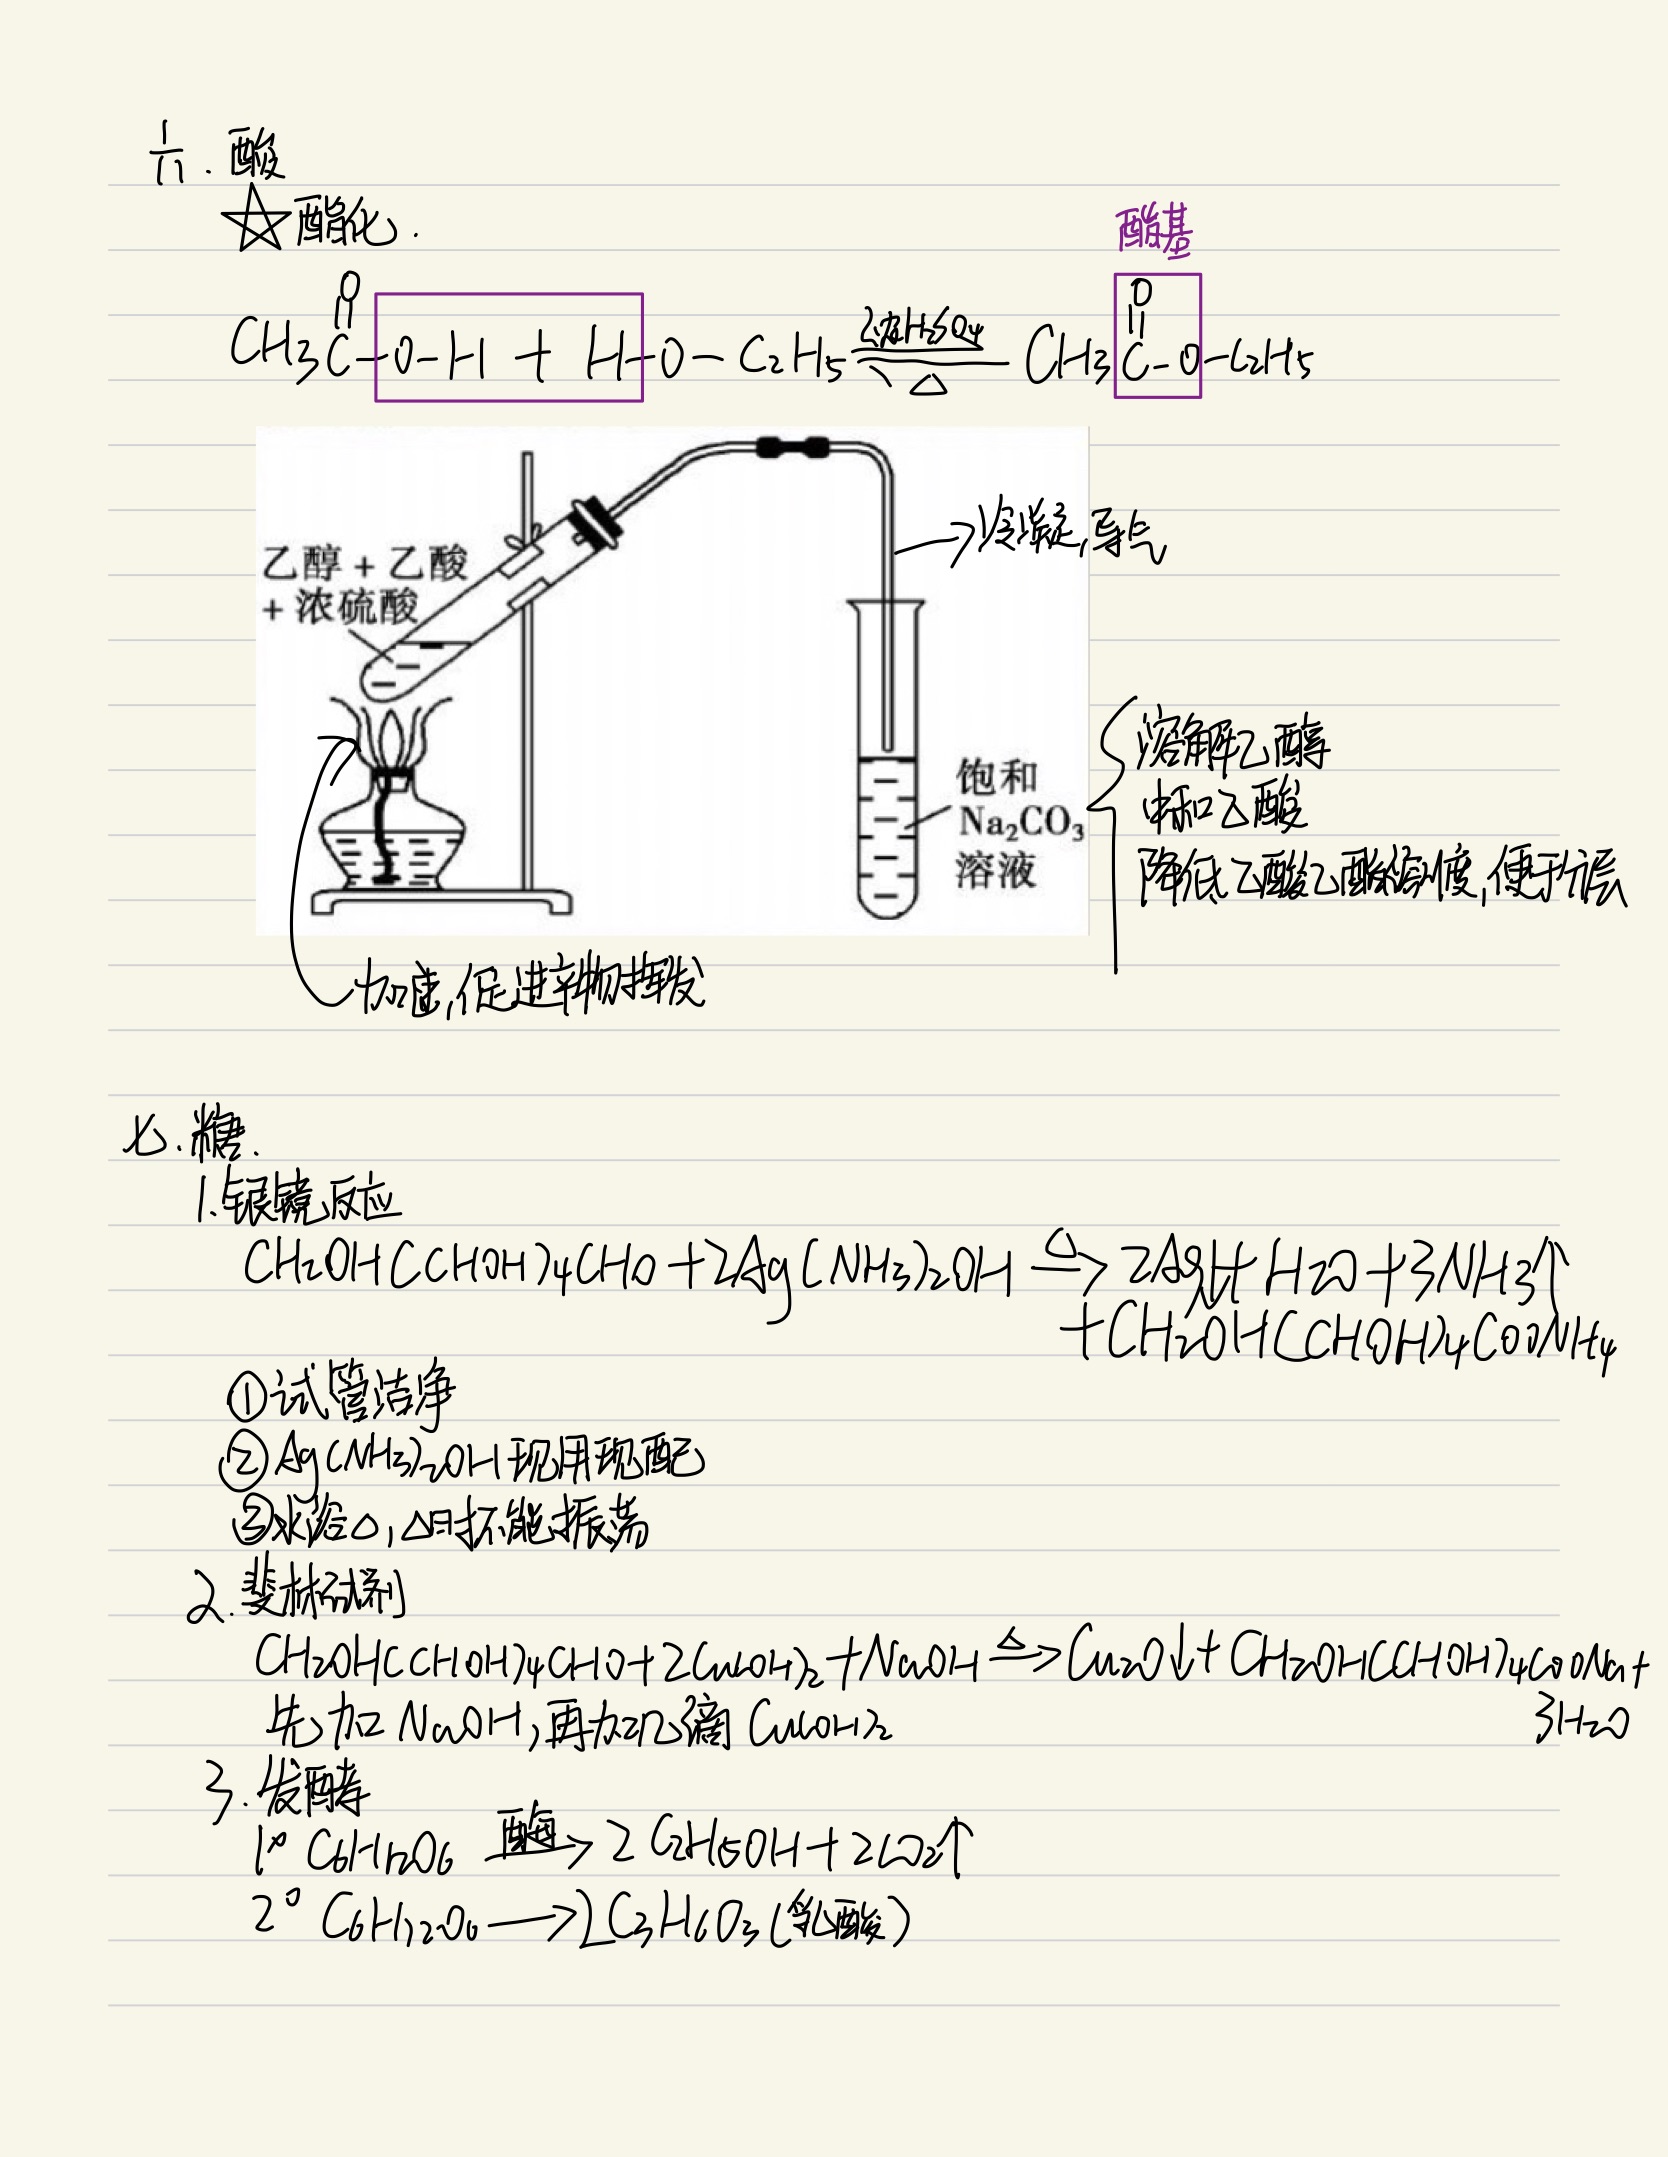 六. 酸
☆酯化.
酯基
O O
CH3C-O-H + H-O-C2H5 浓H2SO4 ⇌ △ CH3C-O-C2H5
→冷凝,导气
乙醇 + 乙酸
+ 浓硫酸
饱和
Na2CO3
溶液
溶解乙醇
中和乙酸
降低乙酸乙酯溶解度,便于分层
加速,促进产物挥发
七. 糖.
1. 银镜反应
CH2OH(CHOH)4CHO+2Ag(NH3)2OH △→ 2Ag↓+H2O+3NH3↑
+CH2OH(CHOH)4COONH4
①试管洁净
②Ag(NH3)2OH现用现配
③水浴△,△时不能振荡
2. 斐林试剂
CH2OH(CHOH)4CHO+2Cu(OH)2+NaOH △→Cu2O↓+CH2OH(CHOH)4COONa+
3H2O
先加NaOH,再加几滴Cu(OH)2
3. 发酵
1° C6H12O6 酶→ 2C2H5OH+2CO2↑
2° C6H12O6 →2C3H6O3(乳酸)